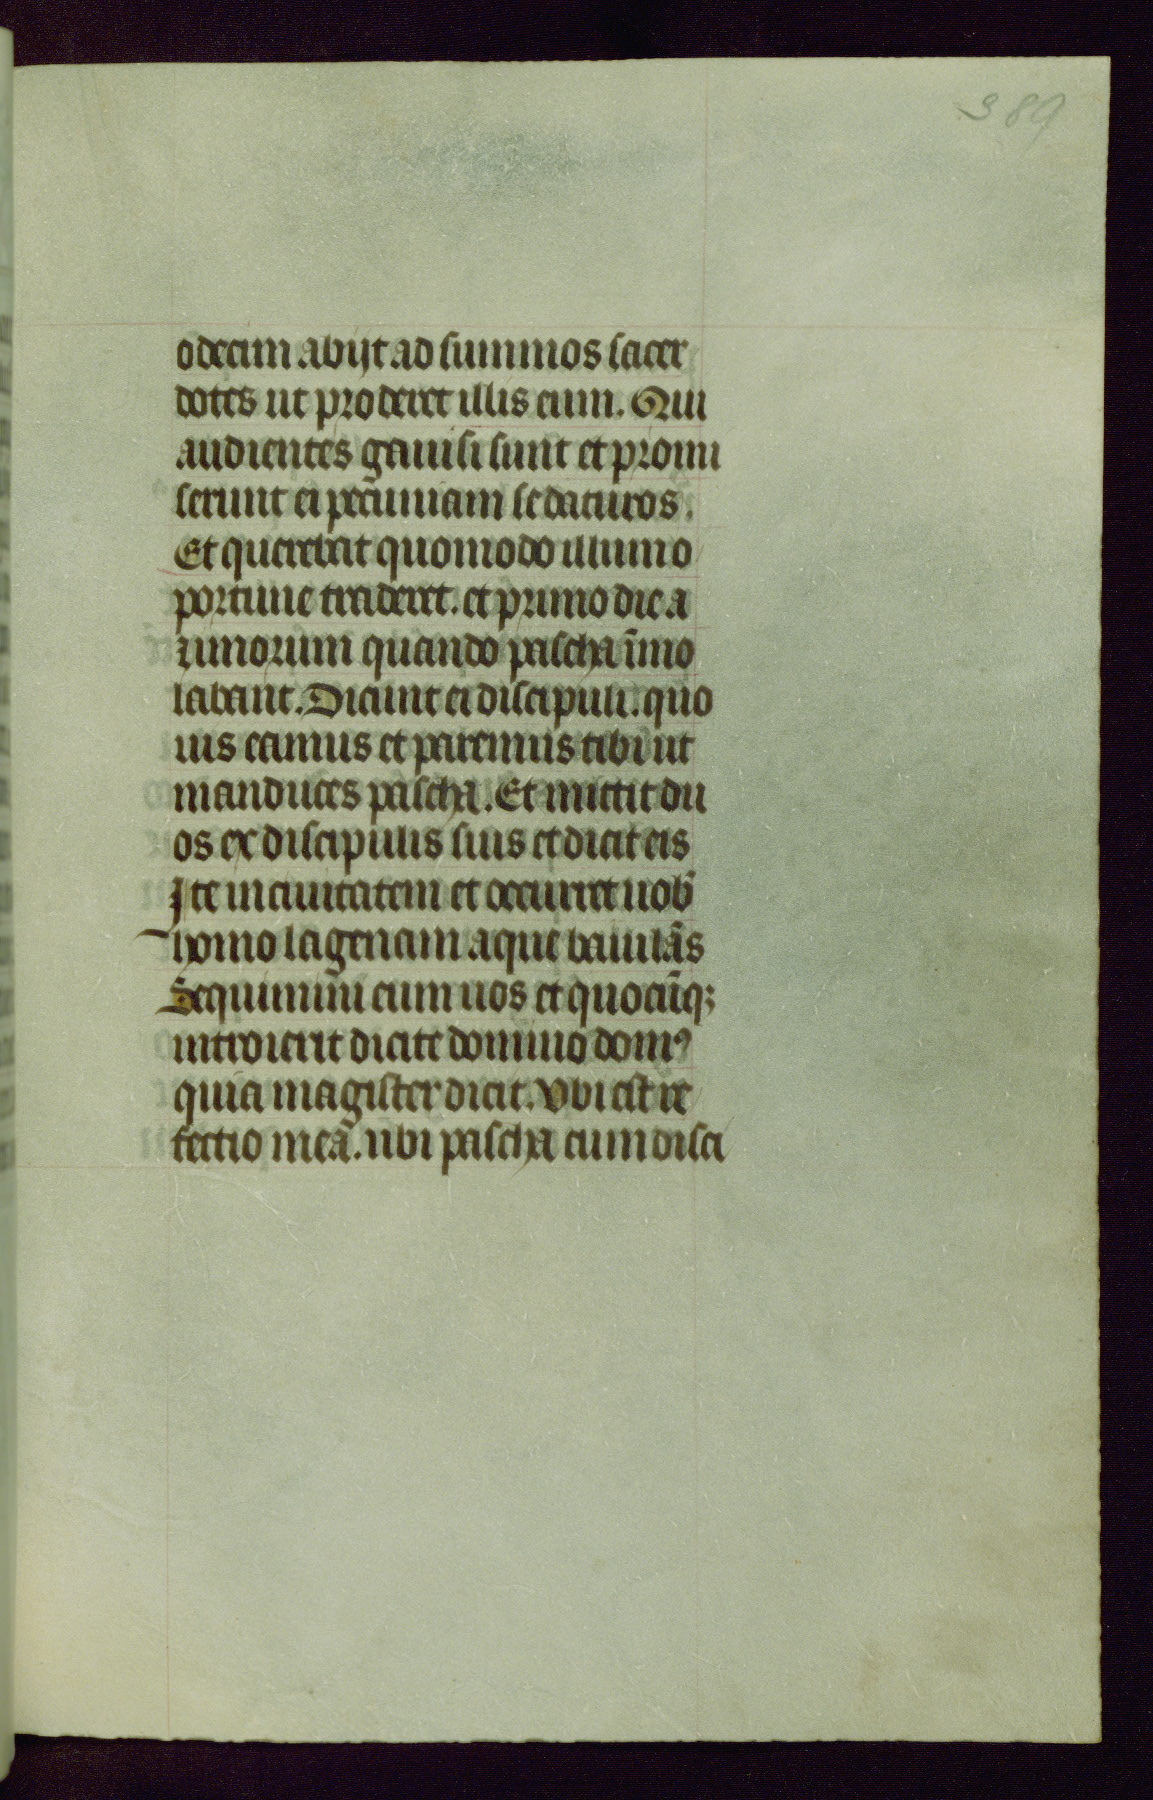 389
odecim abijt ad summos sacer
dotes ut proderet illis eum. Qui
audientes gauisi sunt et promi
serunt ei pecũniam se daturos.
Et querebat quomodo illum o
portune traderet. et primo die a
zimorum quando pascha ĩmo
labant. Dicunt ei discipuli. quo
uis eamus et paremus tibi ut
manduces pascha. Et mittit du
os ex discipulis suis et dicit eis
Ite in ciuitatem et occurret uob̃
homo lagenam aque baiulãs
Sequimini eum uos et quocũq;
introierit dicite domino domꝰ
quia magister dicit. Vbi est re
fectio meã. ubi pascha cum disci